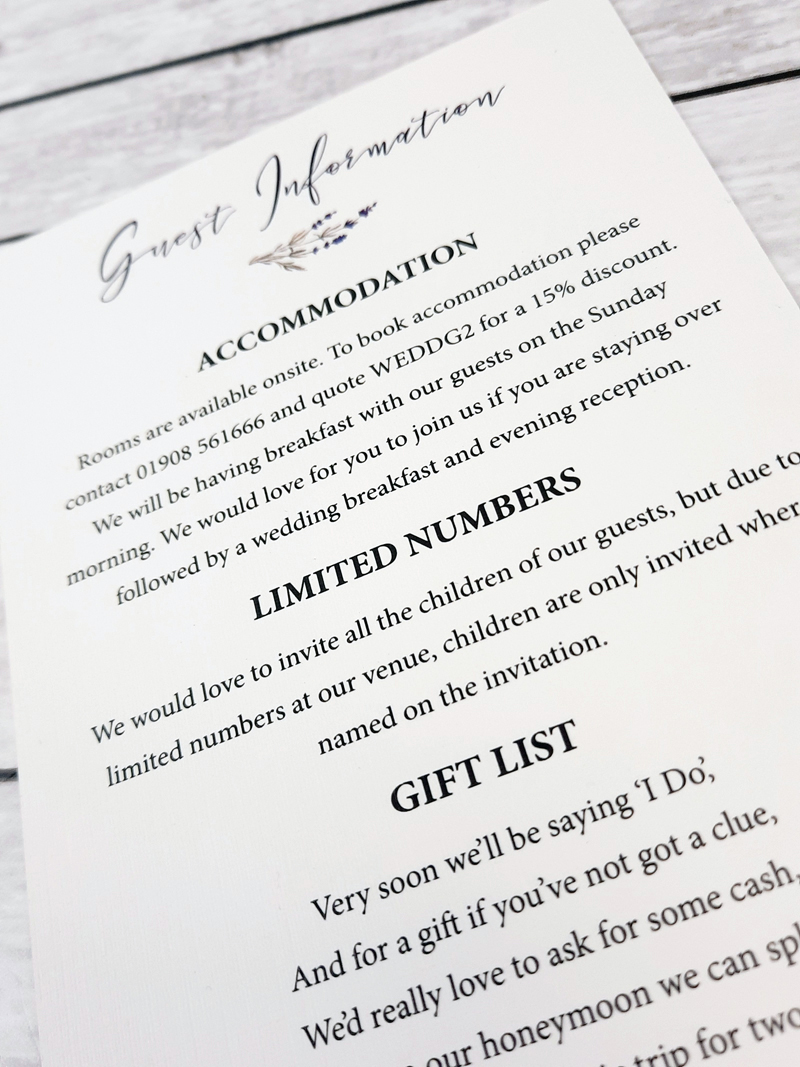 Guest Information
ACCOMMODATION
Rooms are available onsite. To book accommodation please
contact 01908 561666 and quote WEDDG2 for a 15% discount.
We will be having breakfast with our guests on the Sunday
morning. We would love for you to join us if you are staying over
followed by a wedding breakfast and evening reception.
LIMITED NUMBERS
We would love to invite all the children of our guests, but due to
limited numbers at our venue, children are only invited where
named on the invitation.
GIFT LIST
Very soon we'll be saying ‘I Do’,
And for a gift if you've not got a clue,
We'd really love to ask for some cash,
our honeymoon we can
trip for two